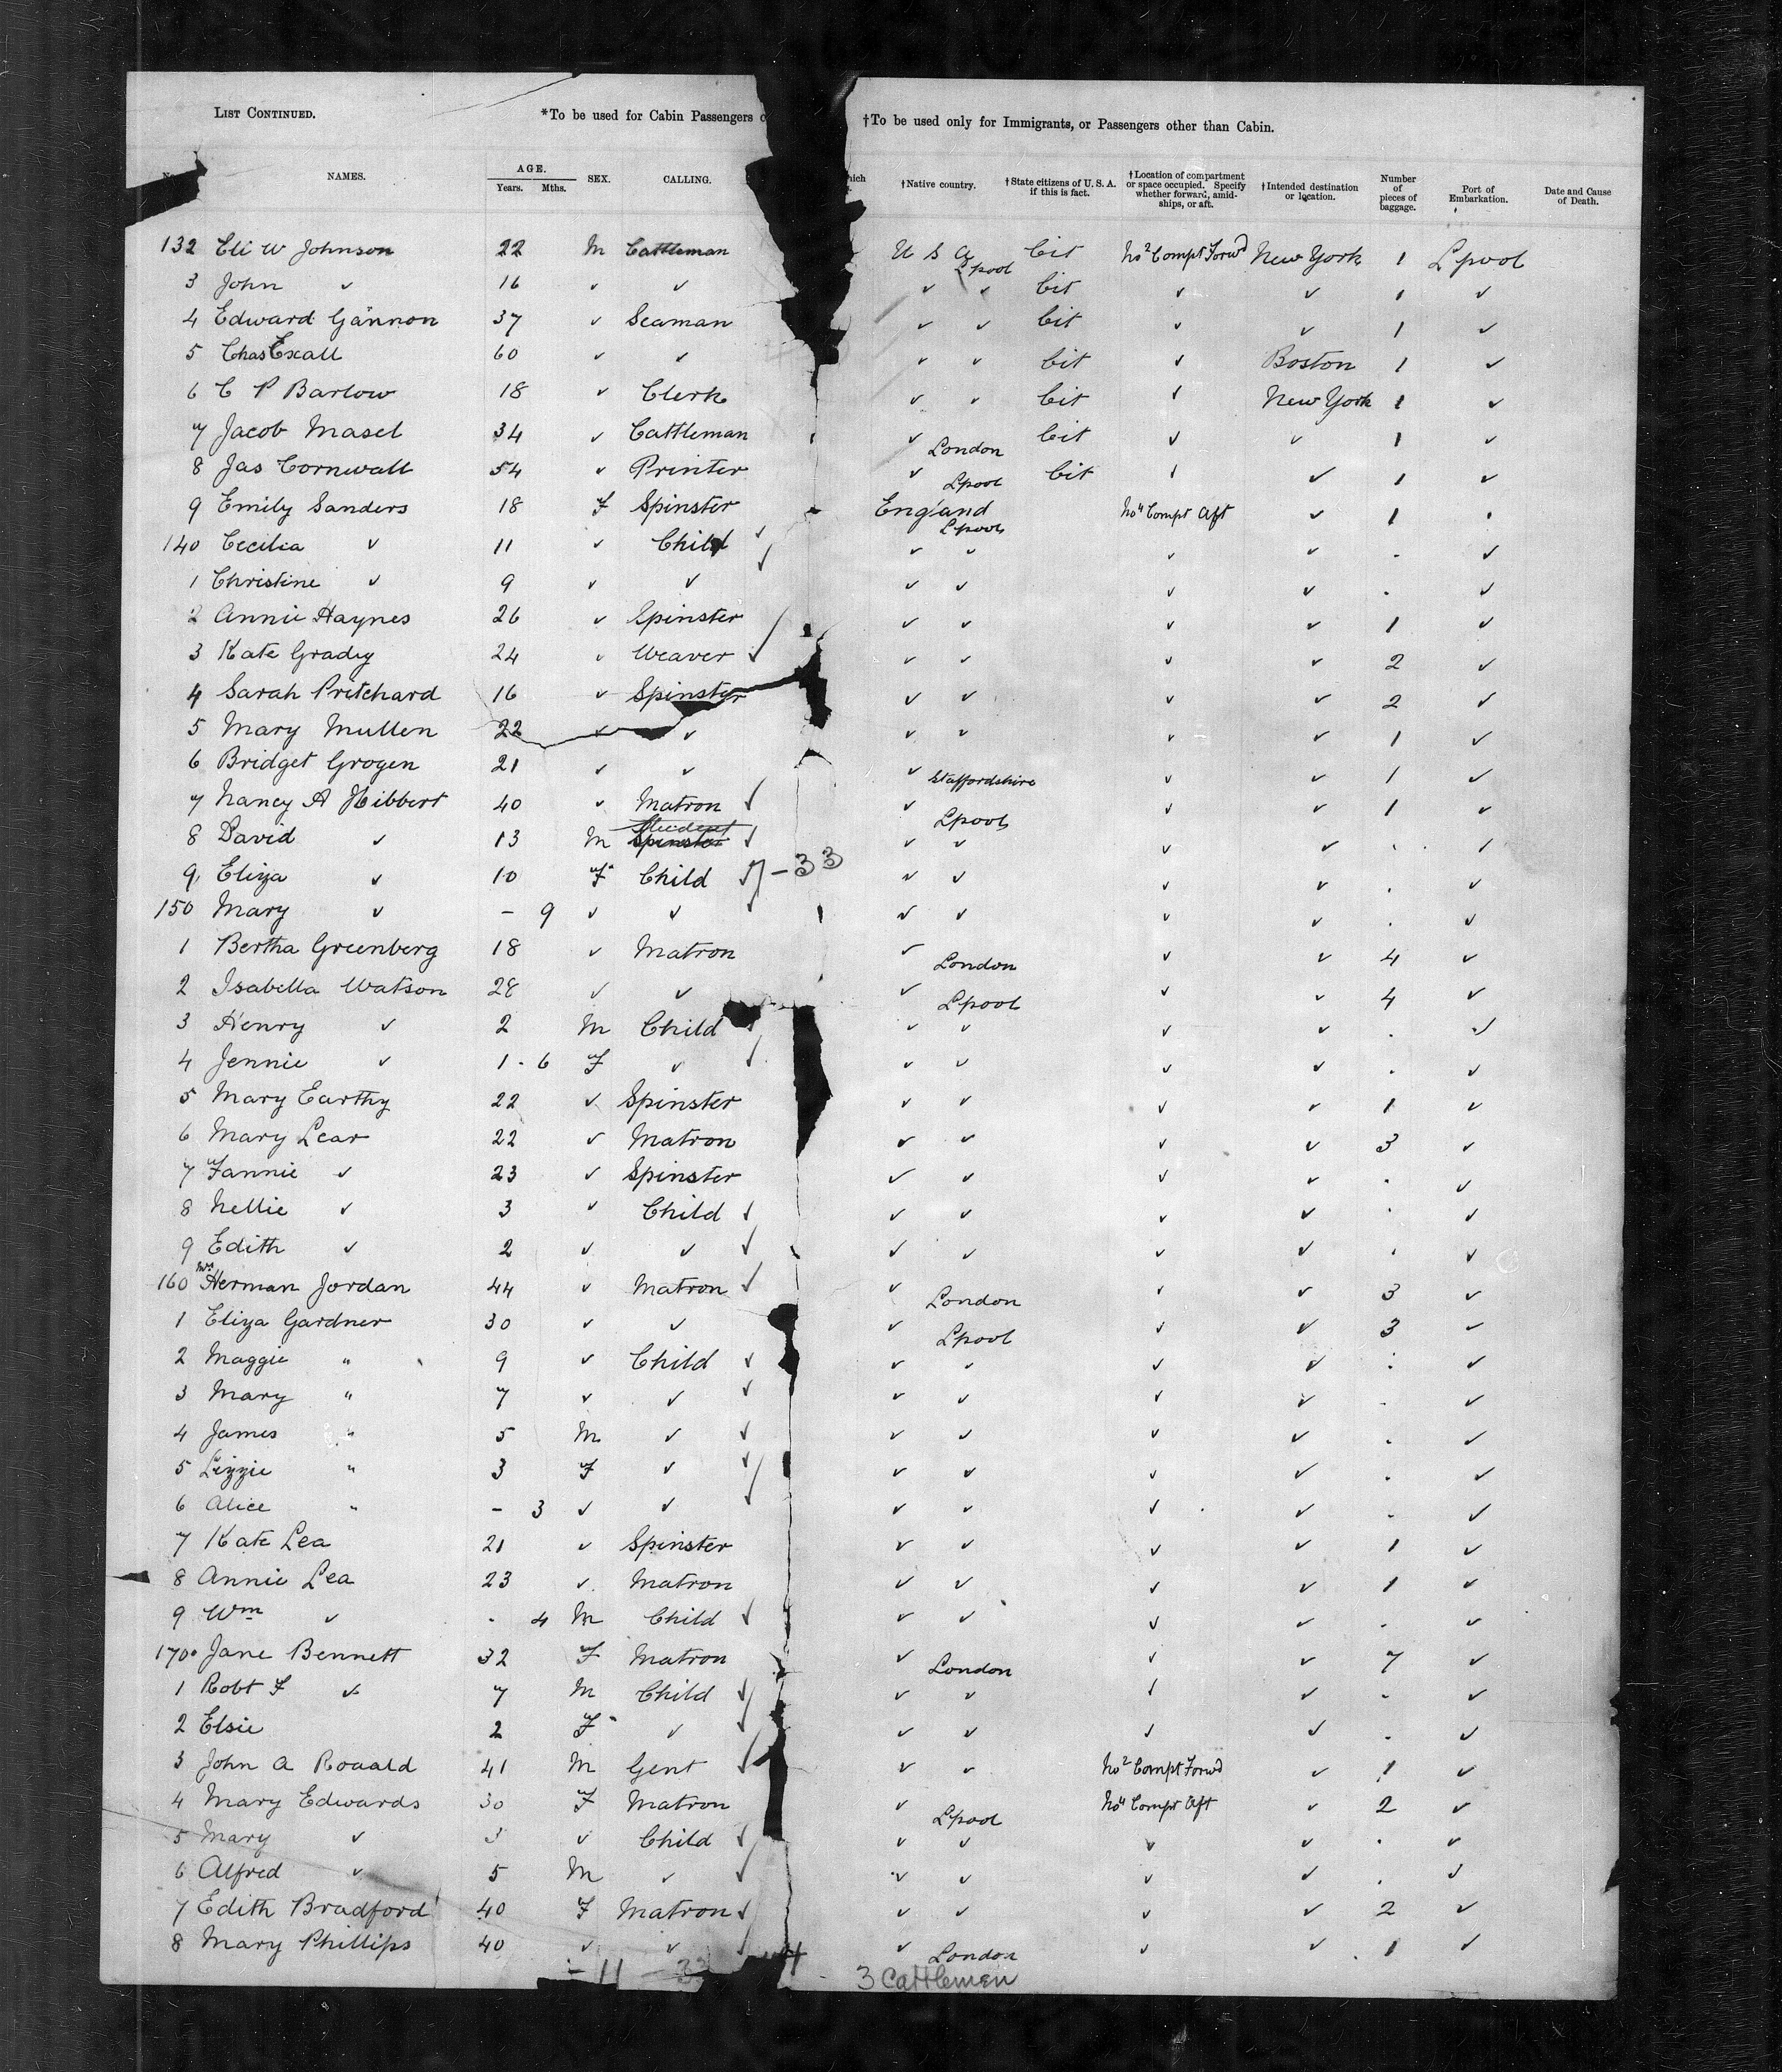 LIST CONTINUED. *To be used for Cabin Passengers †To be used only for Immigrants, or Passengers other than Cabin.
NAMES. AGE. Years. Mths. SEX. CALLING. †Native country. †State citizens of U. S. A. if this is fact. †Location of compartment or space occupied. Specify whether forward, amidships, or aft. †Intended destination or location. Number of pieces of baggage. Port of Embarkation. Date and Cause of Death.
132 Eli W Johnson 22 M Cattleman U S A Lpool Cit No 2 Compt Forwd New York 1 Lpool
3 John ✓ 16 ✓ ✓ ✓ ✓ Cit ✓ ✓ 1 ✓
4 Edward Gannon 37 ✓ Seaman ✓ ✓ Cit ✓ ✓ 1 ✓
5 Chas Exall 60 ✓ ✓ ✓ ✓ Cit ✓ Boston 1 ✓
6 C P Barlow 18 ✓ Clerk ✓ ✓ Cit ✓ New York 1 ✓
7 Jacob Masel 34 ✓ Cattleman ✓ London Cit ✓ ✓ 1 ✓
8 Jas Cornwall 54 ✓ Printer ✓ Lpool Cit ✓ ✓ 1 ✓
9 Emily Sanders 18 F Spinster England Lpool No 4 Compt Aft ✓ 1 .
140 Cecilia ✓ 11 ✓ Child ✓ ✓ ✓ ✓ ✓ . ✓
1 Christine ✓ 9 ✓ ✓ ✓ ✓ ✓ ✓ ✓ . ✓
2 Annie Haynes 26 ✓ Spinster ✓ ✓ ✓ ✓ 1 ✓
3 Kate Grady 24 ✓ Weaver ✓ ✓ ✓ ✓ ✓ 2 ✓
4 Sarah Pritchard 16 ✓ Spinster ✓ ✓ ✓ ✓ 2 ✓
5 Mary Mullen 22 ✓ ✓ ✓ ✓ ✓ ✓ 1 ✓
6 Bridget Grogen 21 ✓ ✓ ✓ Staffordshire ✓ ✓ 1 ✓
7 Nancy A Hibbert 40 ✓ Matron ✓ ✓ Lpool ✓ ✓ 1 ✓
8 David ✓ 13 M Spinster Student ✓ ✓ ✓ ✓ ✓ . ✓
9 Eliza ✓ 10 F Child ✓ 7-33 ✓ ✓ ✓ ✓ . ✓
150 Mary ✓ - 9 ✓ ✓ ✓ ✓ ✓ ✓ ✓ . ✓
1 Bertha Greenberg 18 ✓ Matron ✓ London ✓ ✓ 4 ✓
2 Isabella Watson 28 ✓ ✓ ✓ Lpool ✓ ✓ 4 ✓
3 Henry ✓ 2 M Child ✓ ✓ ✓ ✓ ✓ . ✓
4 Jennie ✓ 1 - 6 F ✓ ✓ ✓ ✓ ✓ ✓ . ✓
5 Mary Earthy 22 ✓ Spinster ✓ ✓ ✓ ✓ 1 ✓
6 Mary Lear 22 ✓ Matron ✓ ✓ ✓ ✓ 3 ✓
7 Fannie ✓ 23 ✓ Spinster ✓ ✓ ✓ ✓ . ✓
8 Nellie ✓ 3 ✓ Child ✓ ✓ ✓ ✓ ✓ . ✓
9 Edith ✓ 2 ✓ ✓ ✓ ✓ ✓ ✓ ✓ . ✓
160 Mrs Herman Jordan 44 ✓ Matron ✓ ✓ London ✓ ✓ 3 ✓
1 Eliza Gardner 30 ✓ ✓ ✓ Lpool ✓ ✓ 3 ✓
2 Maggie " 9 ✓ Child ✓ ✓ ✓ ✓ ✓ . ✓
3 Mary " 7 ✓ ✓ ✓ ✓ ✓ ✓ ✓ . ✓
4 James " 5 M ✓ ✓ ✓ ✓ ✓ ✓ . ✓
5 Lizzie " 3 F ✓ ✓ ✓ ✓ ✓ ✓ . ✓
6 Alice " - 3 ✓ ✓ ✓ ✓ ✓ ✓ ✓ . ✓
7 Kate Lea 21 ✓ Spinster ✓ ✓ ✓ ✓ 1 ✓
8 Annie Lea 23 ✓ Matron ✓ ✓ ✓ ✓ 1 ✓
9 Wm ✓ . 4 M Child ✓ ✓ ✓ ✓ ✓ . ✓
170 Jane Bennett 32 F Matron ✓ London ✓ ✓ 7 ✓
1 Robt F ✓ 7 M Child ✓ ✓ ✓ ✓ ✓ . ✓
2 Elsie 2 F ✓ ✓ ✓ ✓ ✓ ✓ . ✓
3 John A 41 M Gent ✓ ✓ ✓ No 2 Compt Forwd ✓ 1 ✓
4 Mary Edwards 30 F Matron ✓ Lpool No 4 Compt Aft ✓ 2 ✓
5 Mary ✓ 3 ✓ Child ✓ ✓ ✓ ✓ ✓ . ✓
6 Alfred ✓ 5 M ✓ ✓ ✓ ✓ ✓ ✓ . ✓
7 Edith Bradford 40 F Matron ✓ ✓ ✓ ✓ ✓ 2 ✓
8 Mary Phillips 40 ✓ ✓ ✓ ✓ London ✓ ✓ 1 ✓
- 11 - 33 3 Cattlemen